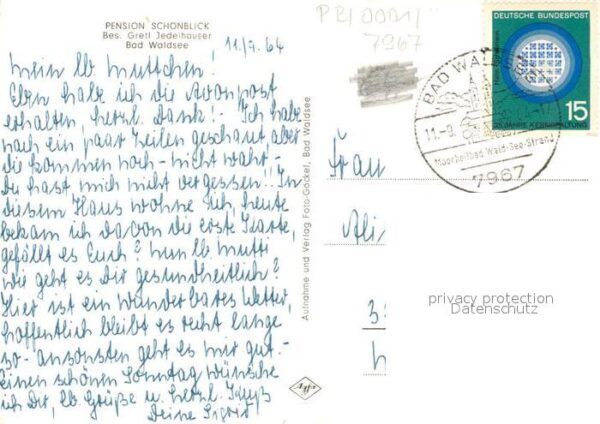 PENSION SCHÖNBLICK
Bes. Gretl Jedelhauser
Bad Waldsee
11./9. 64
Mein lb. Muttchen!
Eben habe ich die Avonpost
erhalten, herzl. Dank! - Ich habe
nach ein paar Zeilen geschaut aber
die kommen noch - nicht wahr -
Du hast mich nicht vergessen!! In
diesem Haus wohne ich, heute
bekam ich davon die erste Karte,
gefällt es Euch? Nun lb. Mutti
wie geht es Dir gesundheitlich?
Hier ist ein wunderbares Wetter,
hoffentlich bleibt es recht lange
so - ansonsten geht es mir gut. -
Einen schönen Sonntag wünsche
ich Dir, lb. Grüße u. herzl. Kuß
Deine Sigrid
Aufnahme und Verlag Foto-Gockel, Bad Waldsee
Agfa
7967
DEUTSCHE BUNDESPOST
15
25 JAHRE KERNSPALTUNG
BAD WALDSEE
11.-9.
Moorheilbad Wald-See-Strand
7967
Frau
privacy protection
Datenschutz